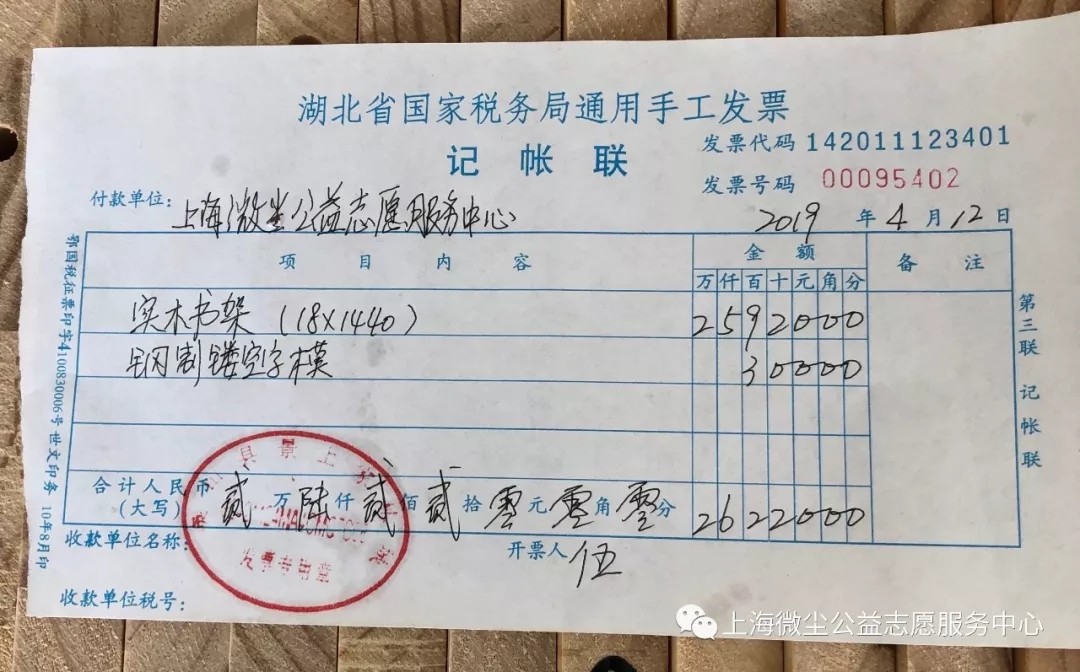 湖北省国家税务局通用手工发票
记帐联
发票代码 142011123401
发票号码 00095402
付款单位：上海微尘公益志愿服务中心
2019 年 4 月 12 日
项目内容 金额 备注
万 仟 百 十 元 角 分
实木书架（18×1440） 2592000
钢制镂空字模 30000
合计人民币（大写） 贰万陆仟贰佰贰拾零元零角零分 2622000
收款单位名称：
开票人 伍
收款单位税号：
发票专用章
鄂国税征票印字4100830006号世文印务 10年8月印
第三联 记帐联
上海微尘公益志愿服务中心